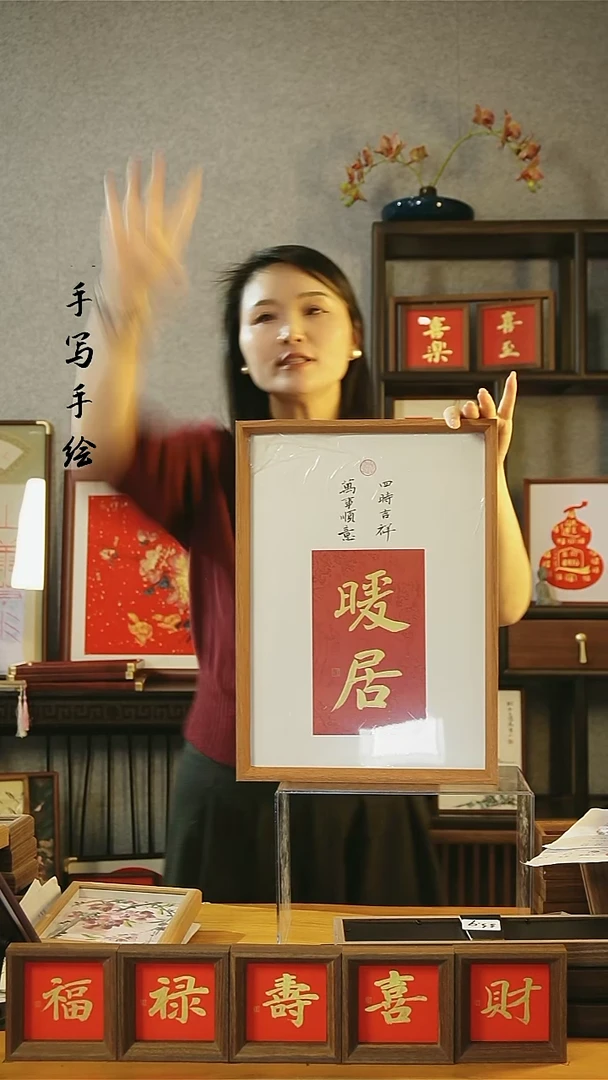 手写手绘
喜樂
喜至
四時吉祥
萬事順意
暖居
福
禄
壽
喜
財